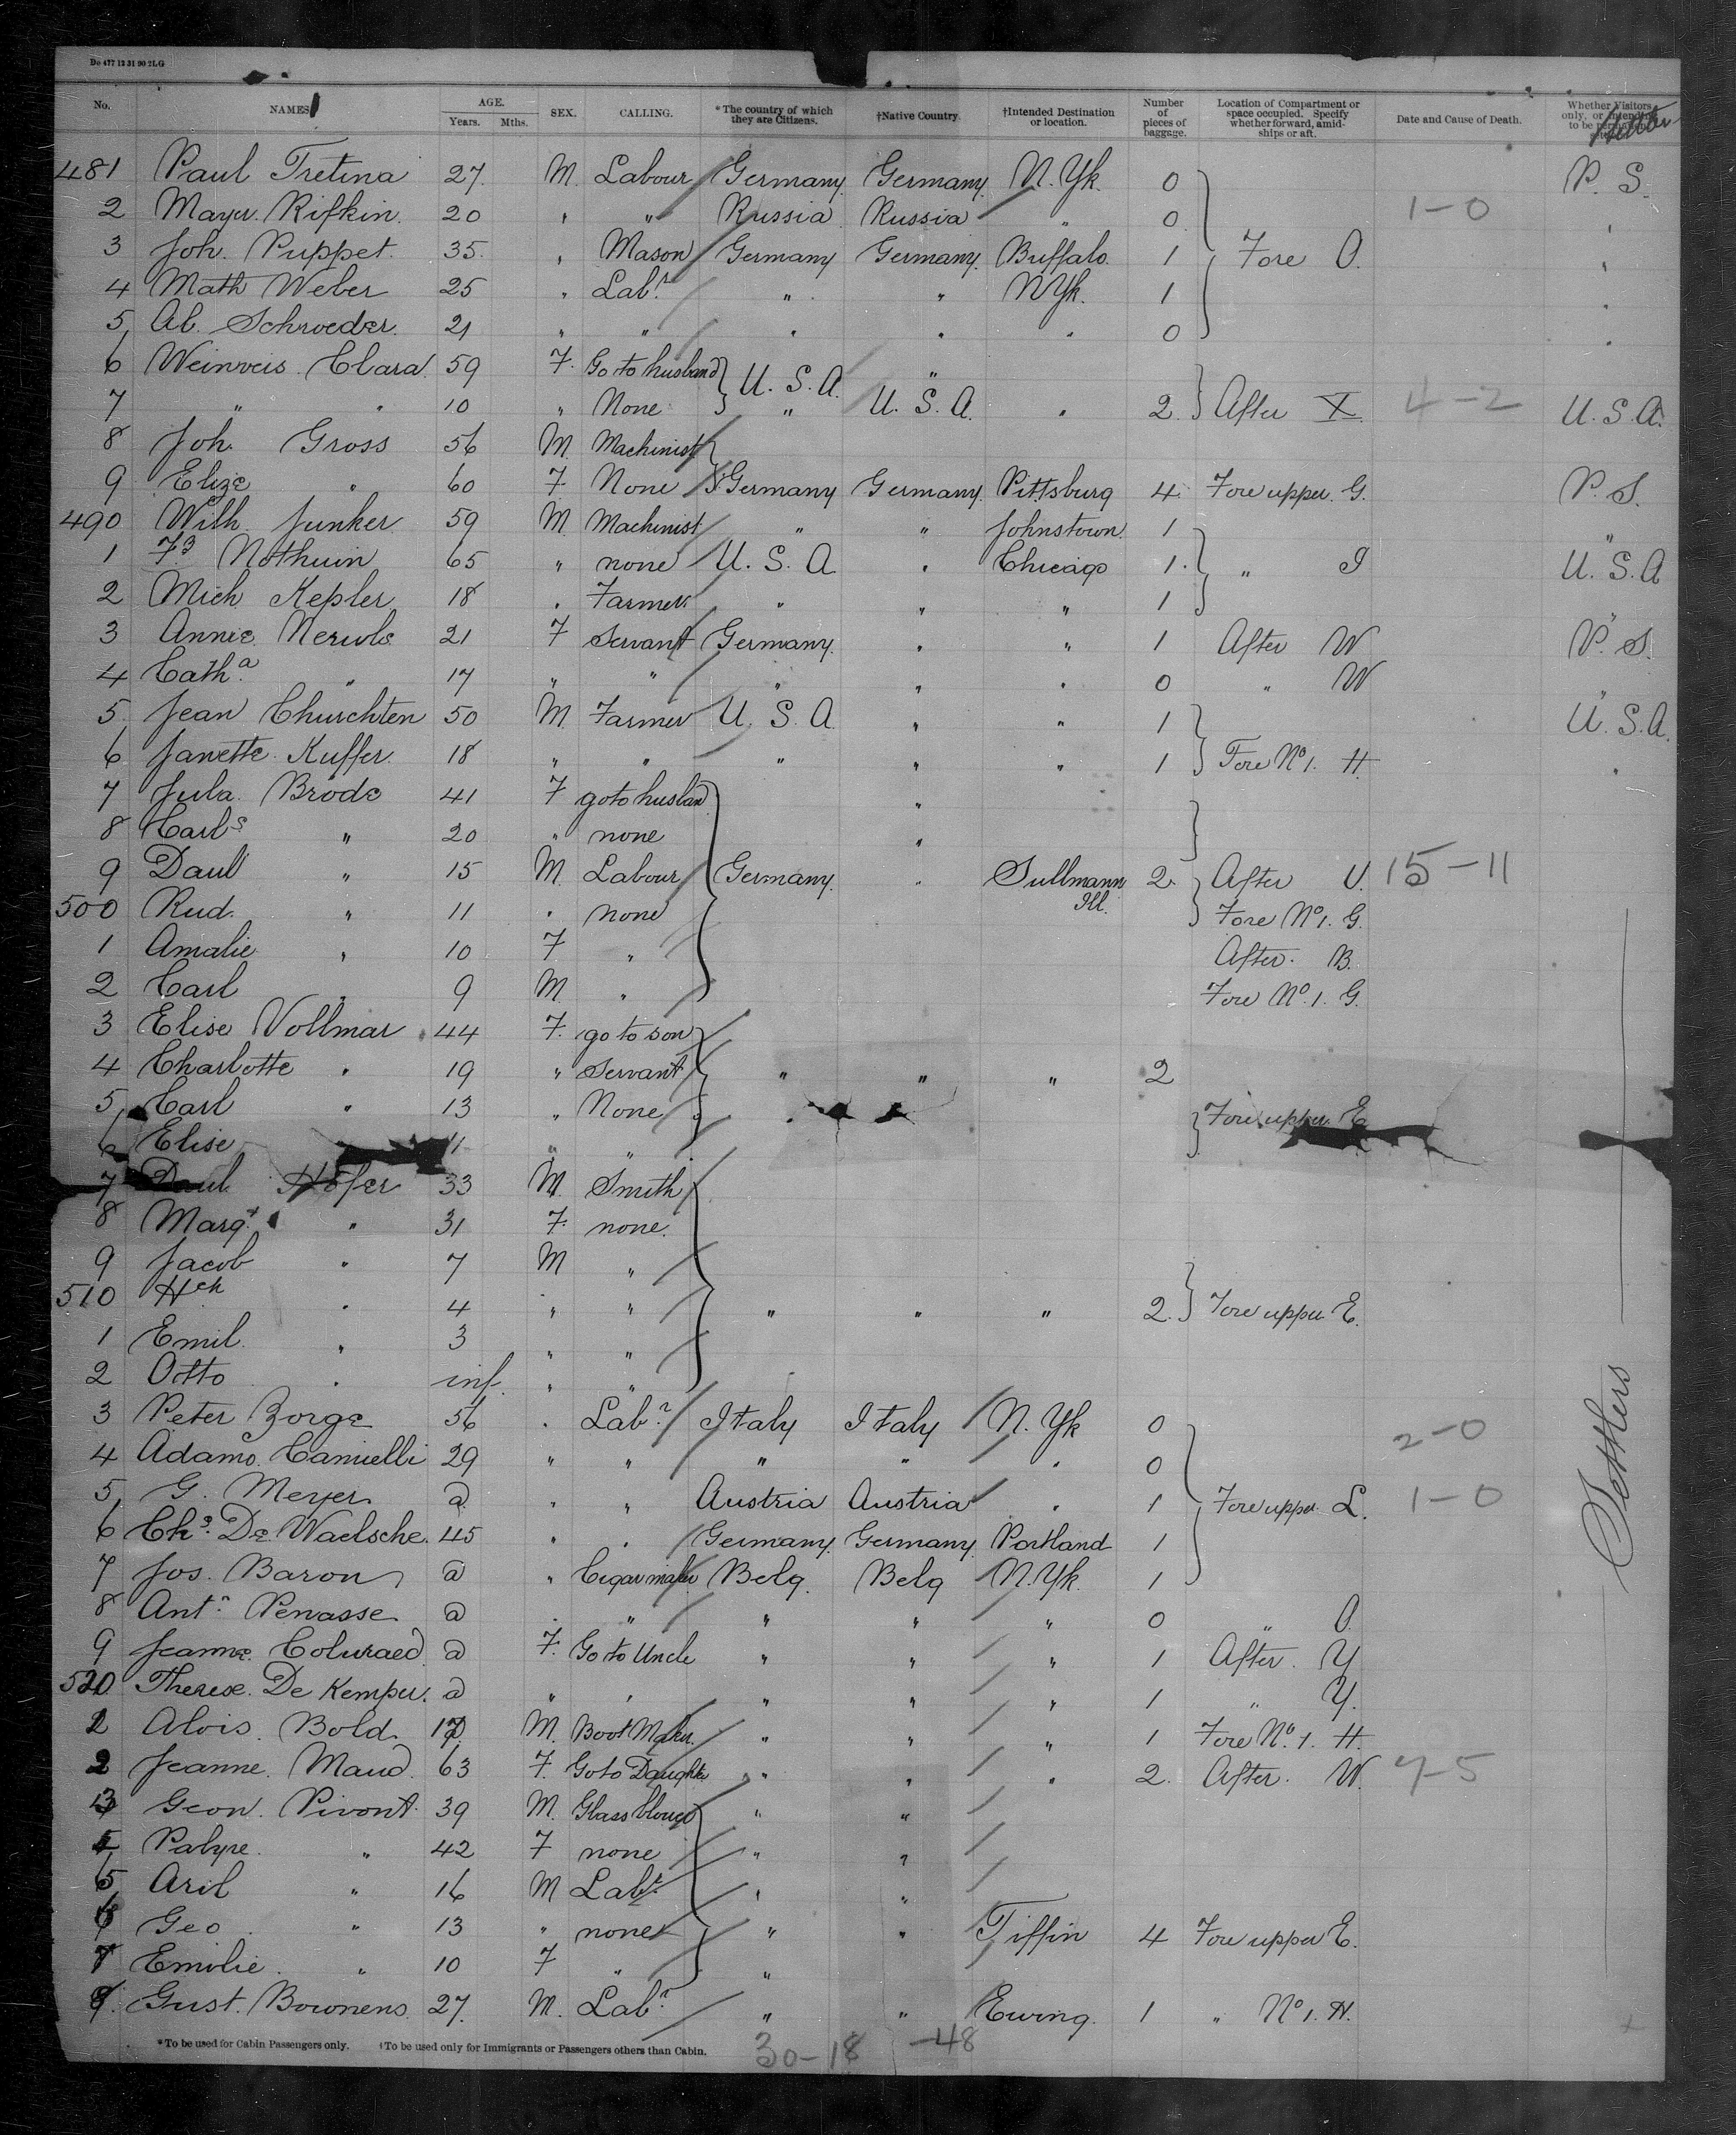 Do 477 12 31 90 2LG
No. NAMES AGE. Years. Mths. SEX. CALLING. *The country of which they are Citizens. †Native Country. †Intended Destination or location. Number of pieces of baggage. Location of Compartment or space occupied. Specify whether forward, amidships or aft. Date and Cause of Death. Whether Visitors only, or intending to be
481 Paul Tretina 27. M. Labour Germany. Germany. N. Yk. 0 P. S.
2 Mayer Rifkin. 20 " " Russia Russia " 0 1-0 "
3 Joh. Puppet. 35. " Mason Germany Germany. Buffalo. 1 Fore O. "
4 Math Weber 25 " Labr. " " N Yk. 1 "
5 Al. Schroeder. 21 " " " " " 0 "
6 Weinveis. Clara. 59 F. Go to husband U. S. A. "
7 " " 10 " None " U. S. A. " 2. After X. 4-2 U. S. A.
8 Joh. Gross 56 M. Machinist
9 Elize " 60 F. None Germany Germany. Pittsburg 4. Fore upper. G. P. S.
490 Wilh. Junker 59 M. Machinist " " Johnstown. 1 "
1 Nothuin 65 " none U. S. A. " Chicago 1. " I U. S. A
2 Mich Kepler. 18 " Farmer. " " " 1 "
3 Annie. 21 F Servant Germany. " " 1 After W P. S.
4 Catha. " 17 " " " " " 0 " W "
5 Jean Churchten 50 M Farmer U. S. A. " " 1 U. S. A.
6 Janette Kuffer. 18 " " " " " 1 Fore No 1. H "
7 Jula. Bröde 41 F go to husban "
8 Carls " 20 " none "
9 Paul " 15 M. Labour Germany. " Sullmann Ill. 2. After U. 15-11
500 Rud. " 11 " none Fore No 1. G.
1 Amalie " 10 F " After. B.
2 Carl " 9 M. " Fore No. 1. G.
3 Elise Vollmar 44 F. go to son
4 Charlotte " 19 " Servant " " " 2
5 Carl " 13 " None " Fore upper. E.
6 Elise " "
7 Paul Höfer 33 M. Smith
8 Margt " 31 F. none.
9 Jacob " 7 M "
510 Hch " 4 " " " " " 2. Fore upper E.
1 Emil. " 3 " "
2 Otto " inf. " "
3 Peter Zorge 56 " Labr. Italy Italy N. Yk 0 2-0
4 Adamo. Camielli 29 " " " " " 0
5 G. Meyer. a " " Austria Austria " 1 Fore upper L. 1-0
6 Chs. De Waelsche. 45 " " Germany. Germany. Portland 1
7 Jos. Baron a " Cigarmaker Belg. Belg N. Yk. 1
8 Antn. Penasse a " " " " " 0 " O.
9 Jeanne. a F. Go to Uncle " " " 1 After. Y
520 Therese. De Kemper. a " " " " " 1 " Y.
1 Alois. Bold. M. Boot Maker. " " " 1 Fore No. 1. H.
2 Jeanne. Maud. 63 F. Go to Daughter " " " 2. After. W. 7-5
3 Geon. Pivont. 39 M. Glass blower " "
4 Palyre. " 42 F none " "
5 Aril " 16 M Labr. " "
6 Geo. " 13 " none " " Tiffin 4 Fore upper E.
7 Emilie. " 10 F " "
Gust. Bownens. 27. M. Labr. " " Ewing. 1 " No 1. H.
Settlers
*To be used for Cabin Passengers only. †To be used only for Immigrants or Passengers others than Cabin. 30-18 -48